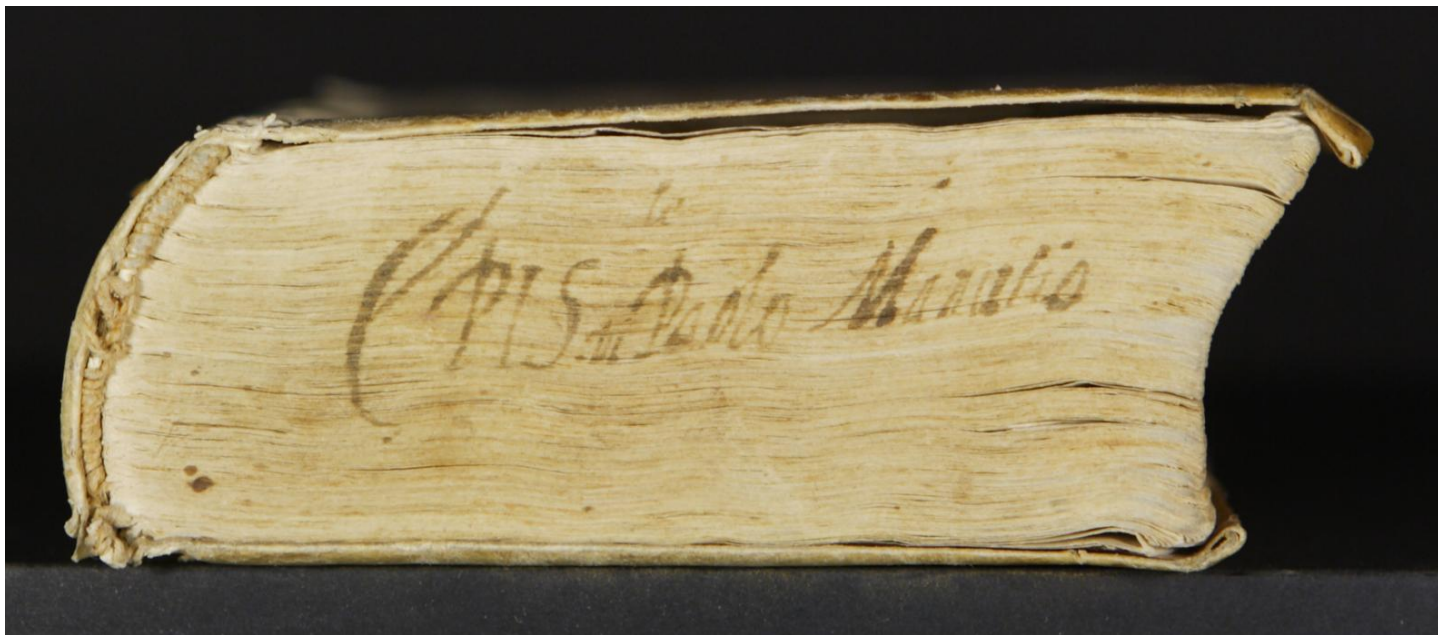 le
EPIS. di Paolo Manutio